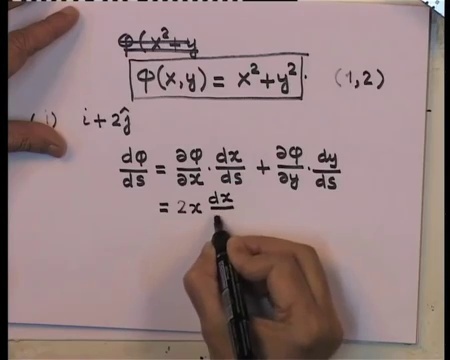 φ(x²+y
φ(x,y) = x²+y². (1,2)
i) i + 2ĵ
dφ/ds = ∂φ/∂x · dx/ds + ∂φ/∂y · dy/ds
= 2x dx